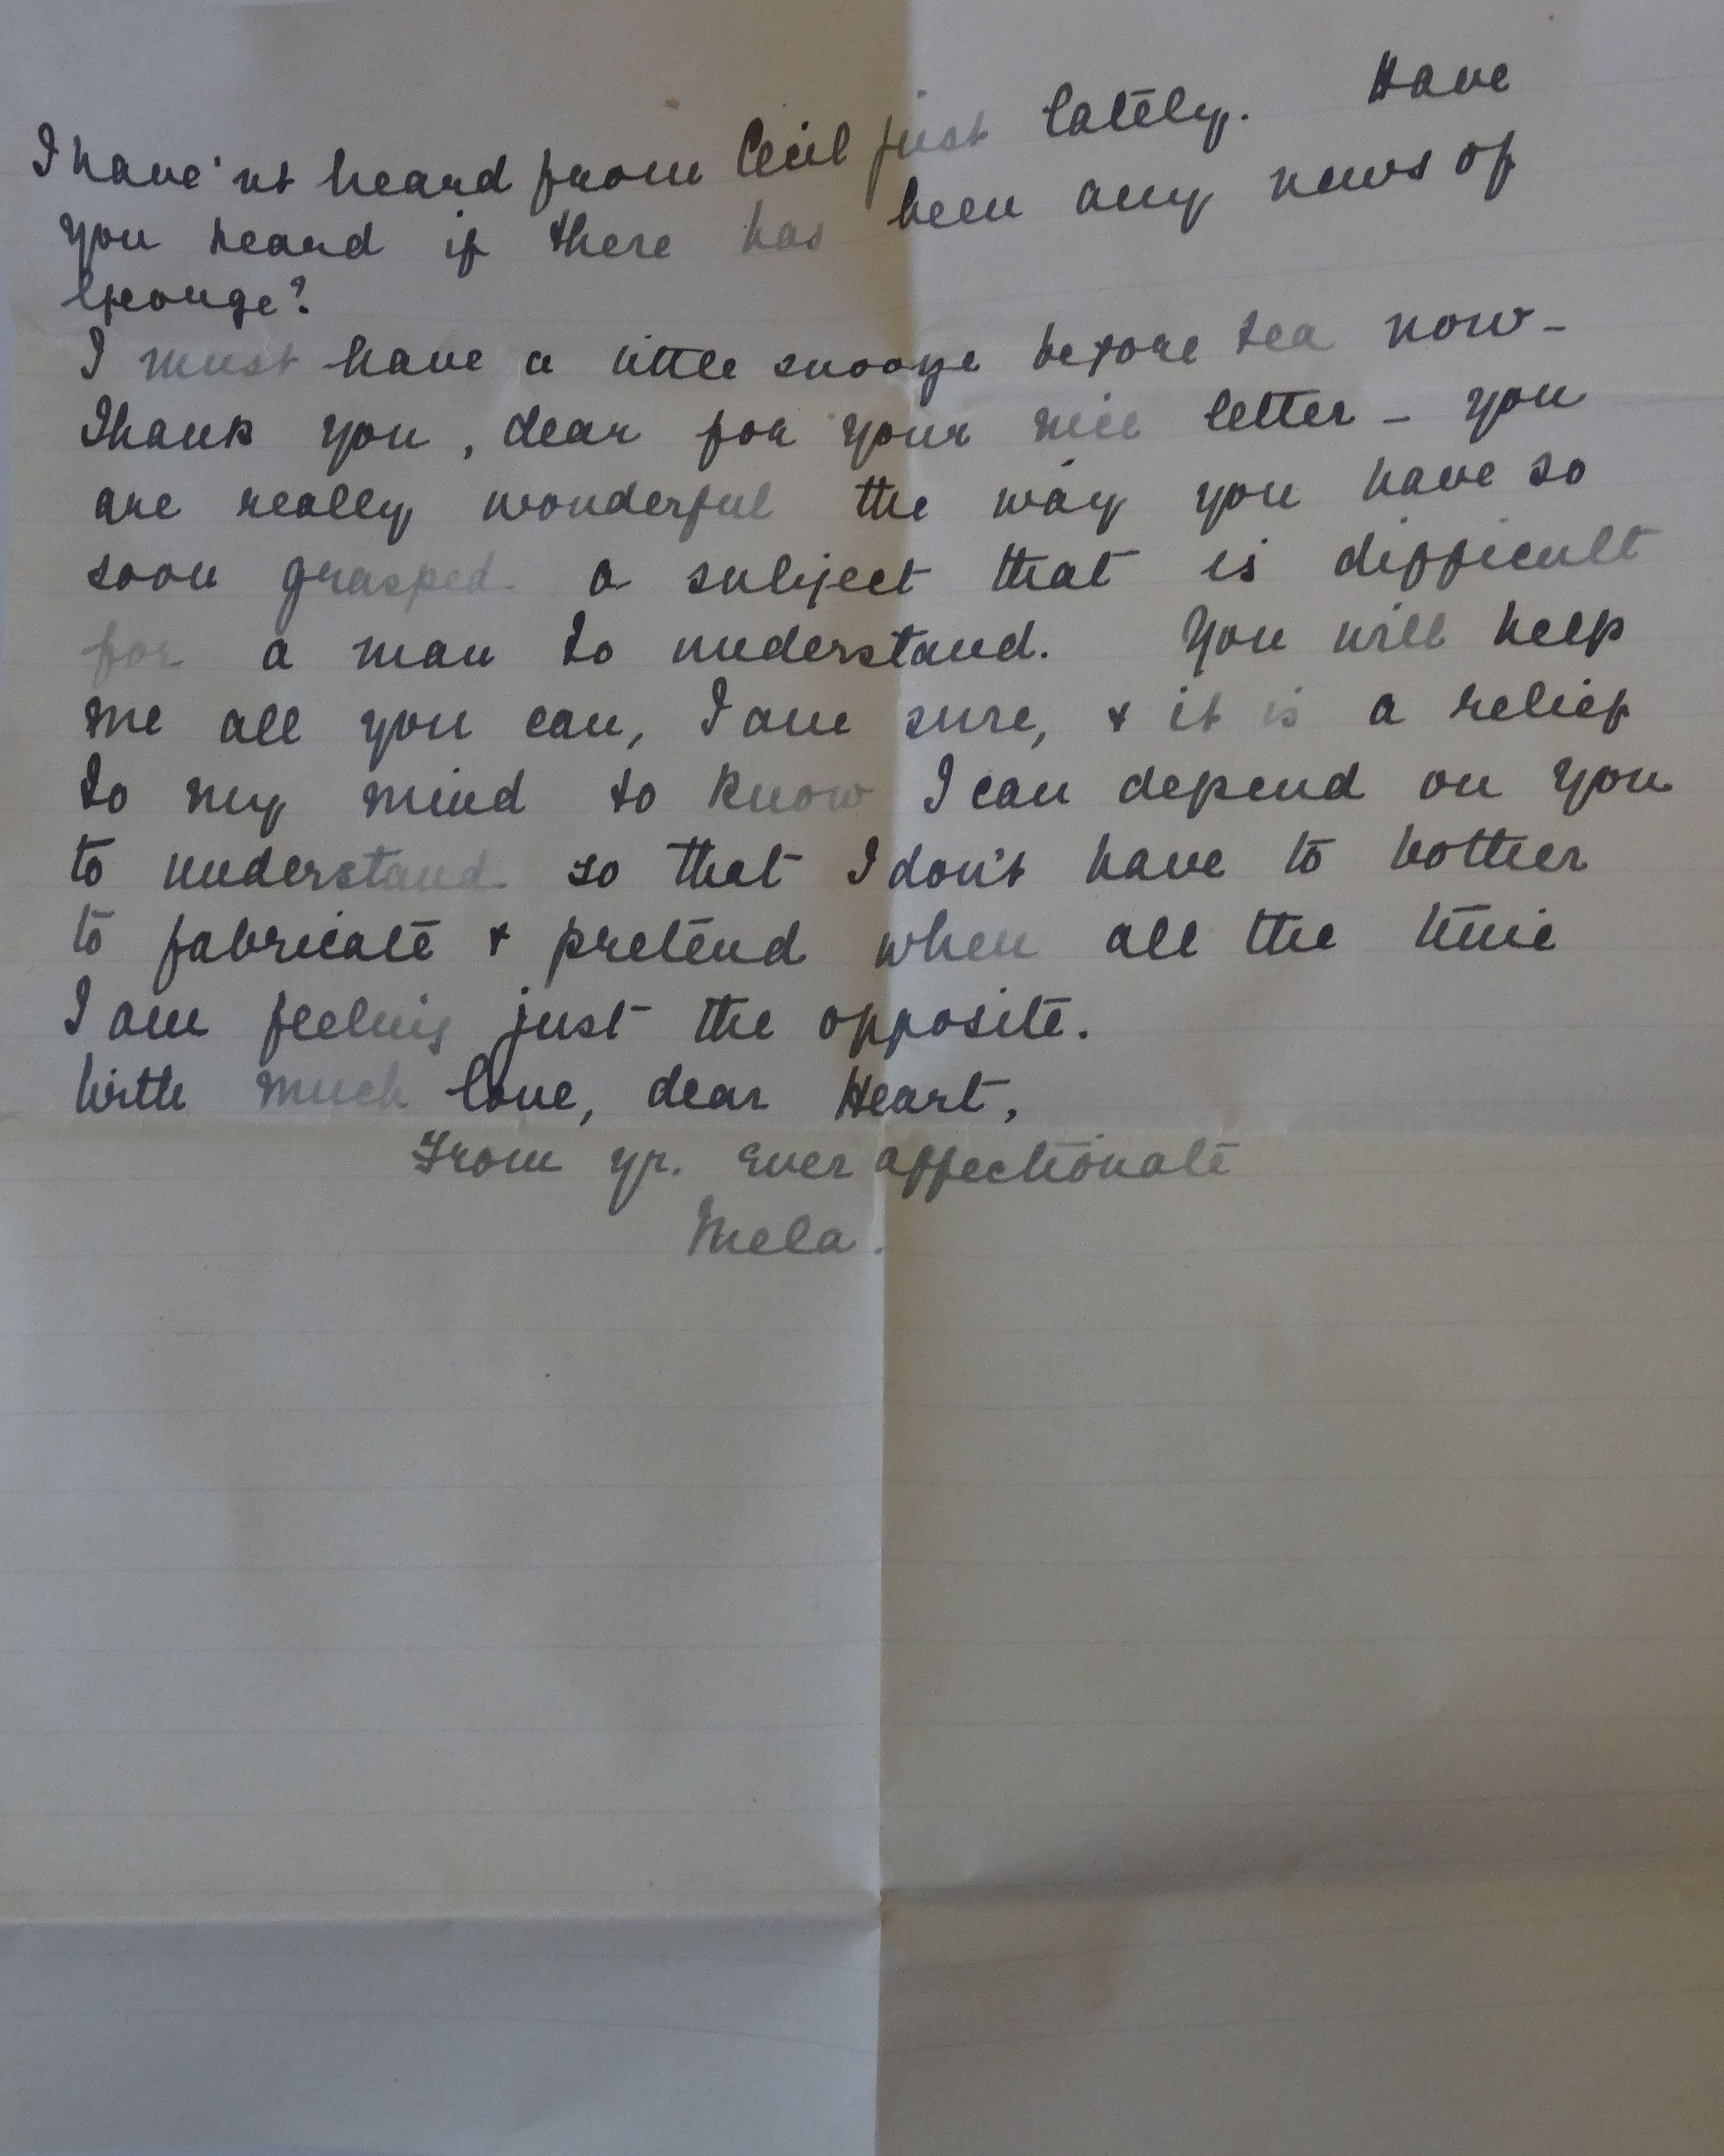 I have'nt heard from Cecil just lately. Have
you heard if there has been any news of
George?
I must have a little snooze before tea now -
Thank you, dear for your nice letter - you
are really wonderful the way you have so
soon grasped a subject that is difficult
for a man to understand. You will help
me all you can, I am sure, & it is a relief
to my mind to know I can depend on you
to understand so that I don't have to bother
to fabricate & pretend when all the time
I am feeling just the opposite.
With much love, dear Heart,
From yr. ever affectionate
Mela.